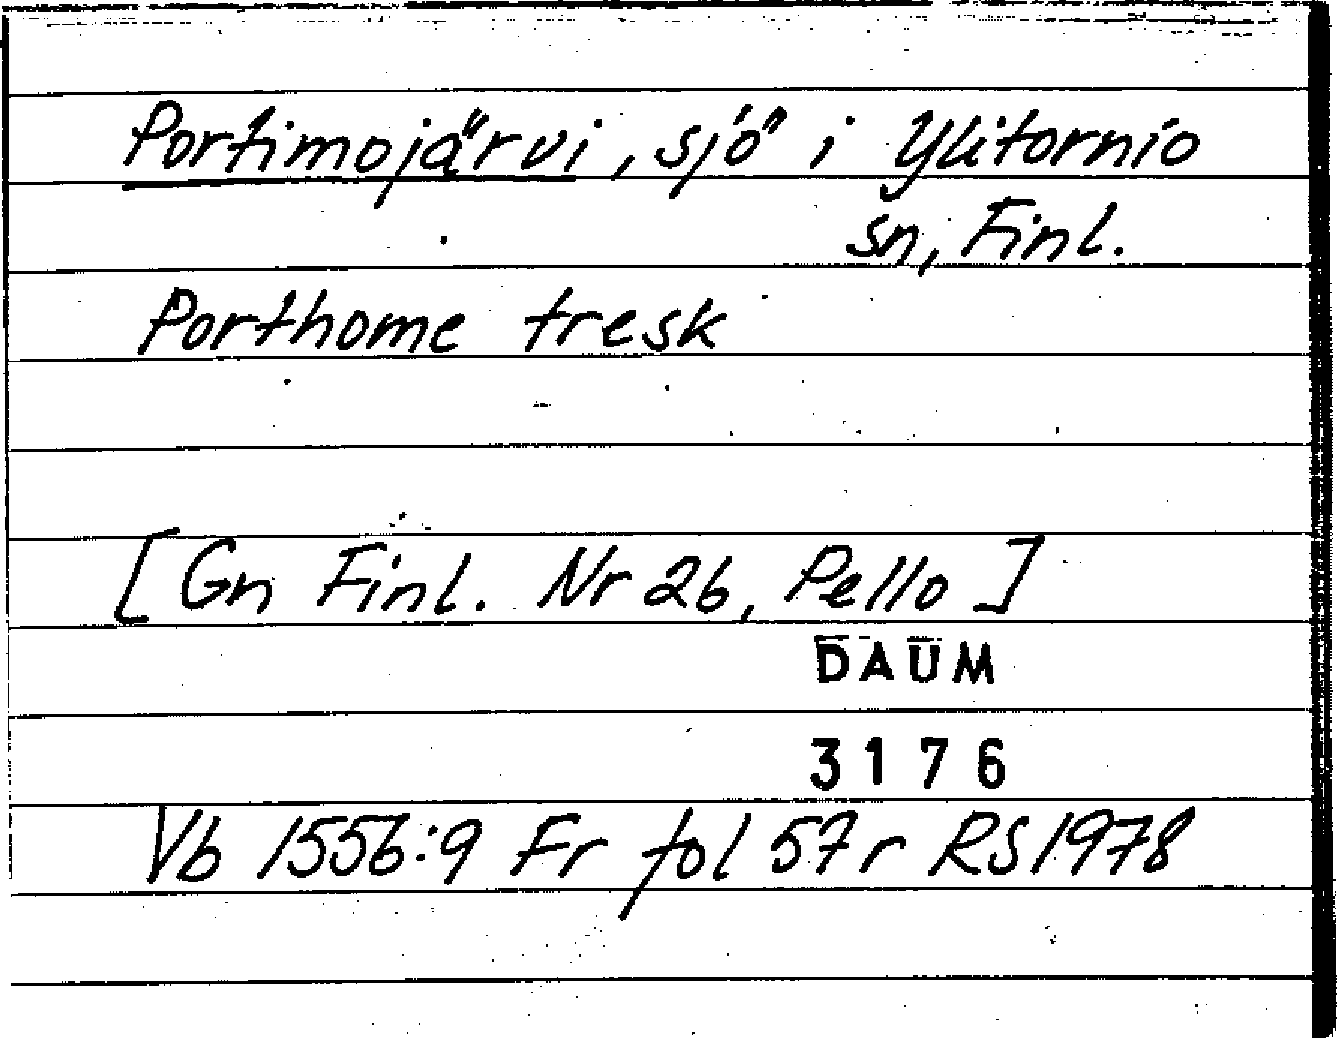 Portimojärvi, sjö i Ylitornio
sn, Finl.
Porthome tresk
[Gn Finl. Nr 26, Pello]
DAUM
3176
Vb 1556:9 Fr fol 57r RS 1978